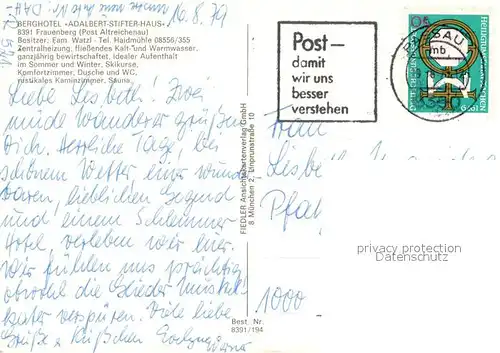 16.8.79
BERGHOTEL »ADALBERT-STIFTER-HAUS«
8391 Frauenberg (Post Altreichenau)
Besitzer: Fam Watzl · Tel. Haidmühle 08556/355
Zentralheizung, fließendes Kalt- und Warmwasser,
ganzjährig bewirtschaftet, idealer Autenthalt
im Sommer und Winter, Skikurse,
Komfortzimmer, Dusche und WC,
rustikales Kaminzimmer, Sauna
Liebe Lisbeth! Zwei
müde Wanderer grüßen
Dich. Herrliche Tage, bei
schönem Wetter, einer wunder
baren, lieblichen Gegend
und einem Schlemmer
Hotel, verleben wir hier.
Wir fühlen uns prächtig
obwohl die Glieder Muskel
kater verspüren. Viele liebe
Grüße & Küßchen Evelyne
Werner
FIEDLER Ansichtskartenverlag GmbH
8 München 2, Linprunstraße 10
Best. Nr.
8391/194
Post –
damit
wir uns
besser
verstehen
PASSAU
Frau
Lisbeth
1000
privacy protection
Datenschutz